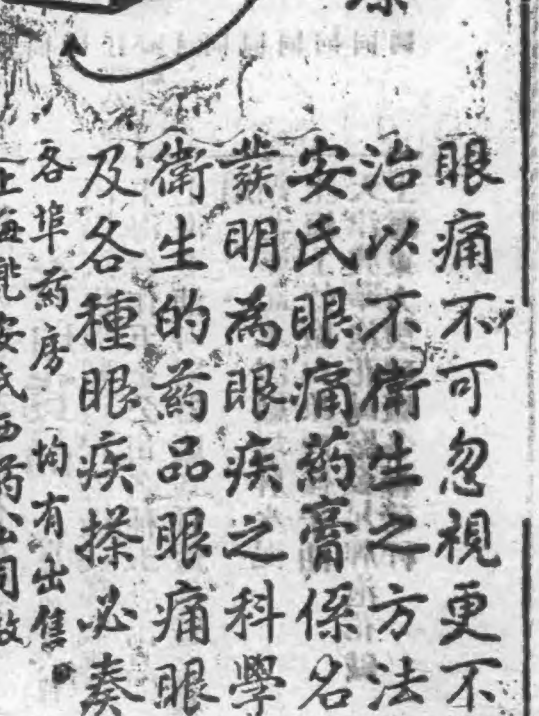 眼痛不可忽視更不
治以不衛生之方法
安氏眼痛药膏係名
發明為眼疾之科學
衛生的药品眼痛眼
及各種眼疾搽必奏
各埠药房 均有出售
上海兜安氏西药公司啟